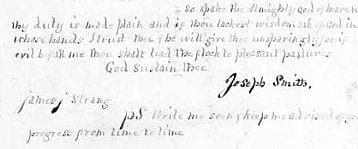 so spake the Almighty god of heaven
thy duty is made plain and if thou lackest wisdom ask of god in
whose hands I trust thee & he will give thee unsparingly for if
evil befall me thou shalt lead the flock to pleasant pastures
God sustain thee
Joseph Smith.
James J Strang
PS Write me soon & keep me advised of your
progress from time to time